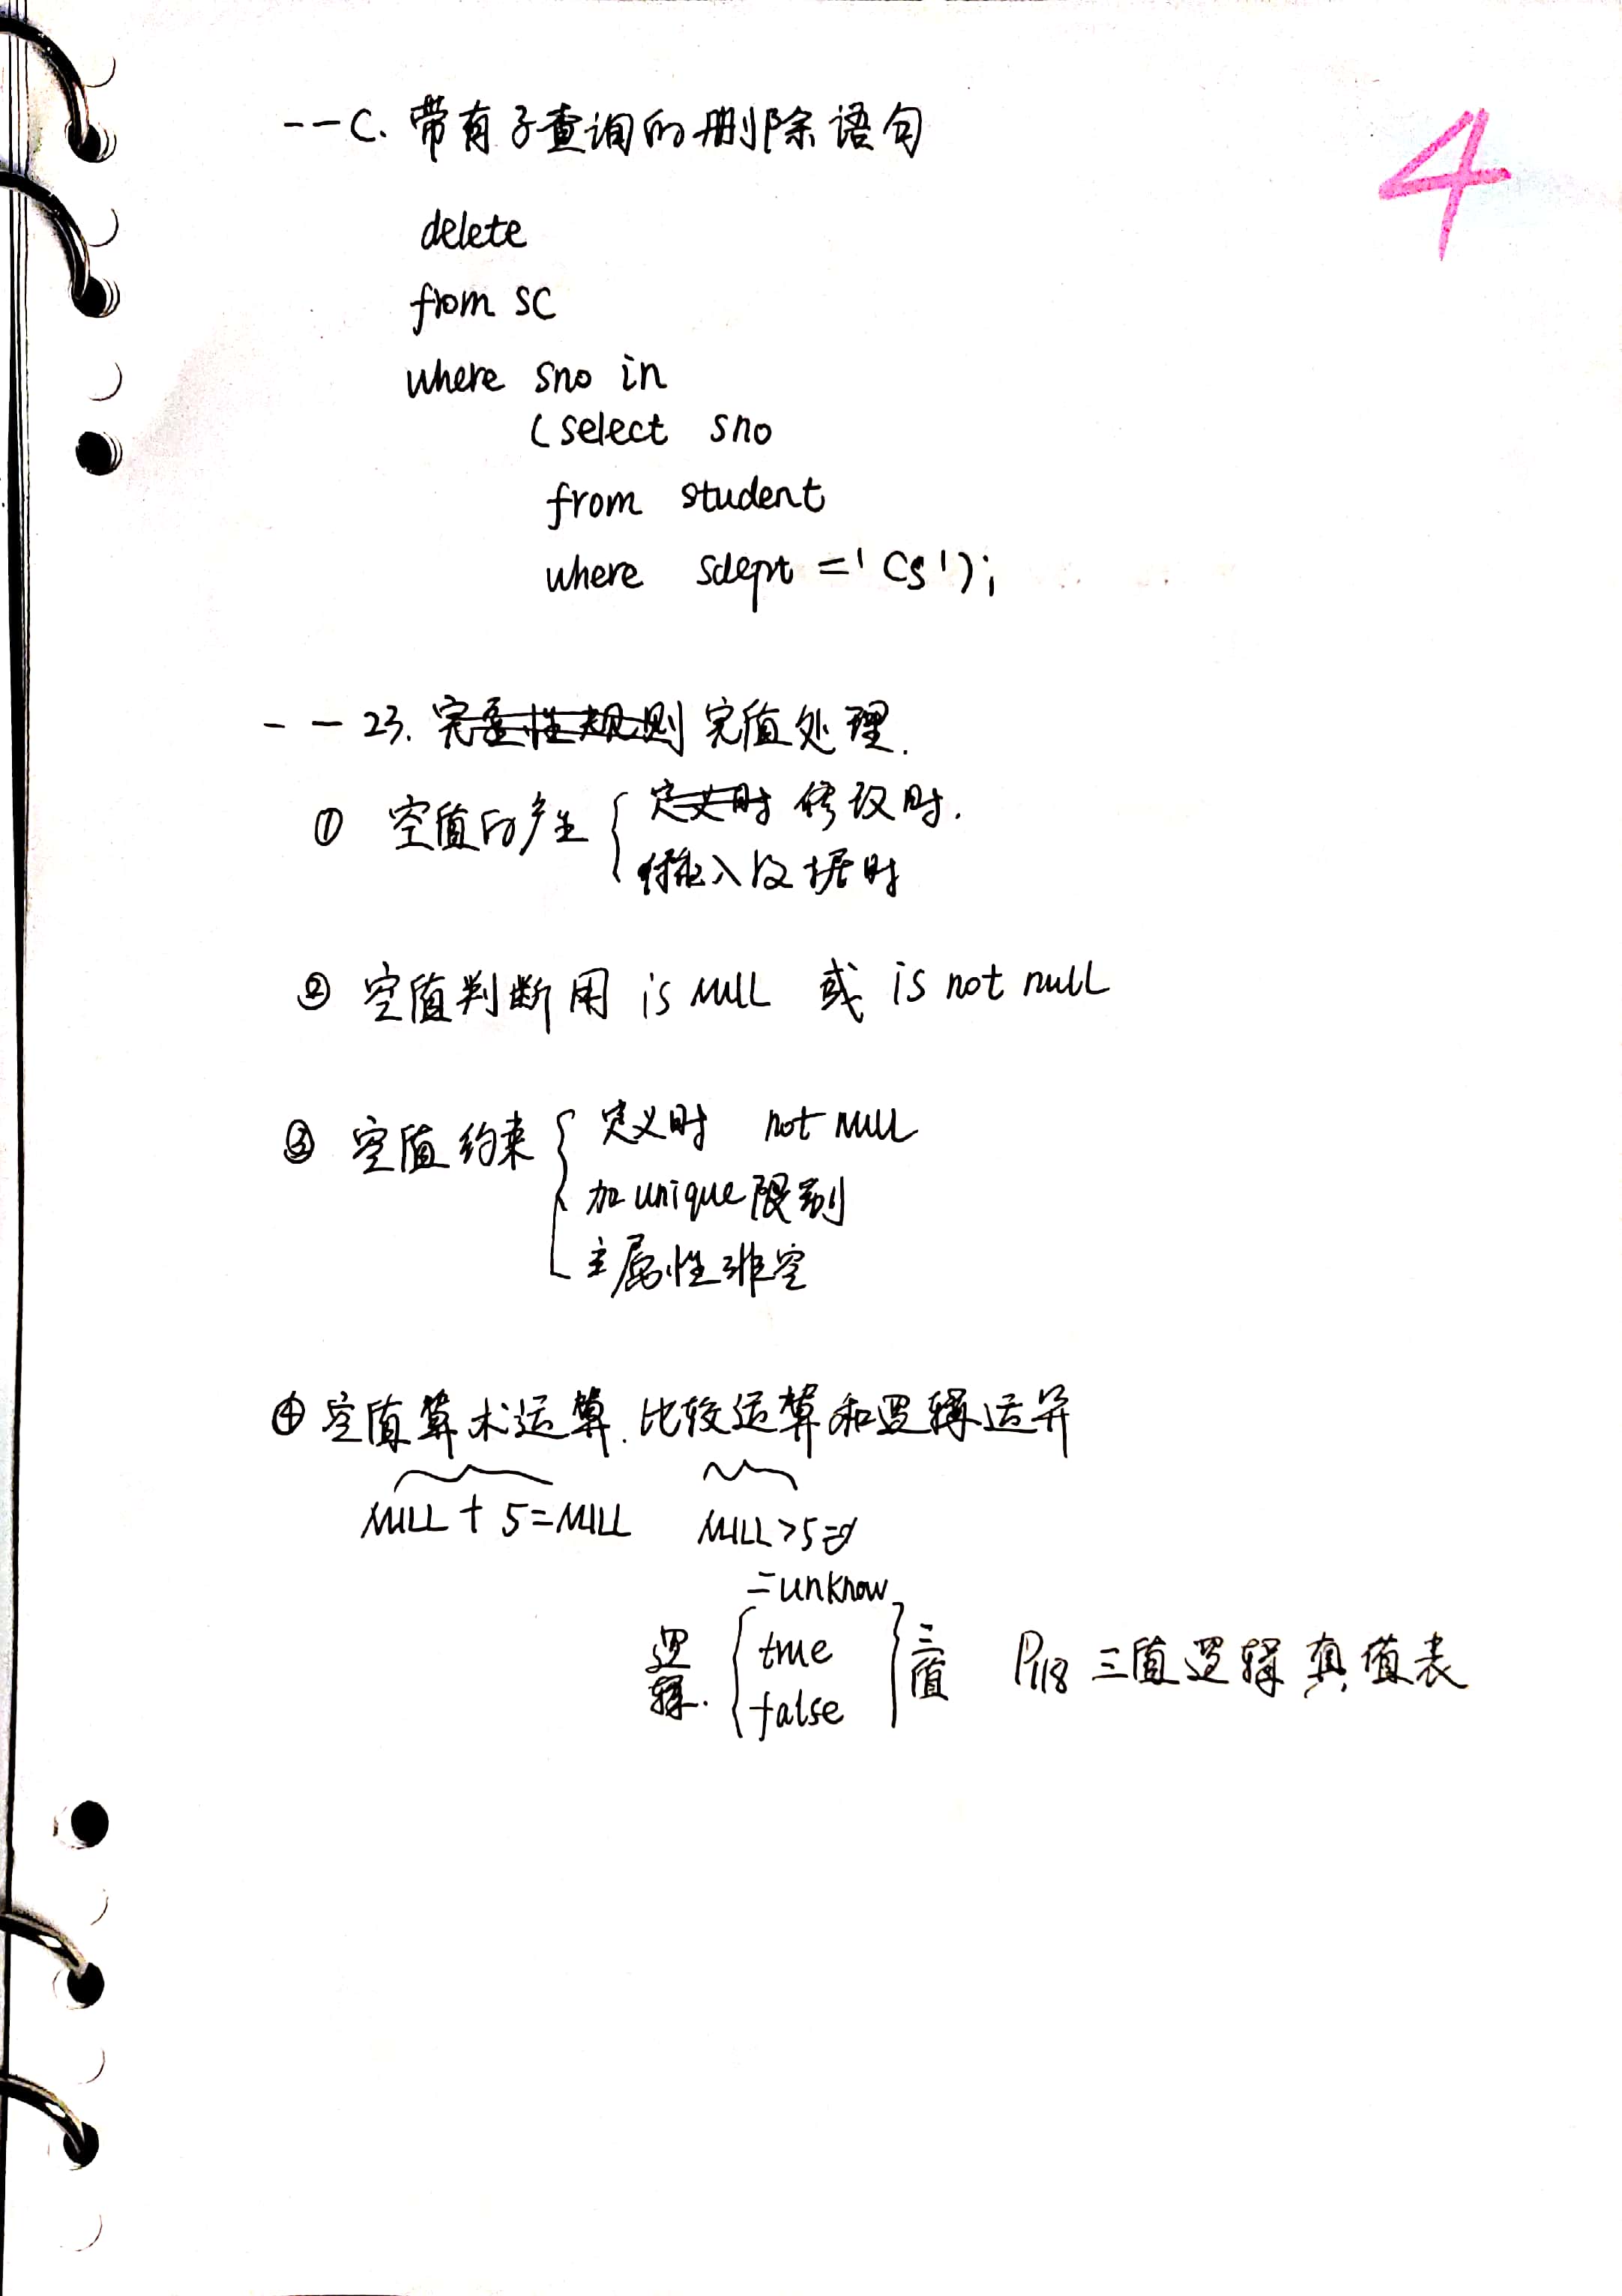 --C. 带有子查询的删除语句
4
delete
from SC
where sno in
(select sno
from student
where sdept ='CS');
--23. 完整性规则 空值处理.
① 空值的产生 { 定义时 修改时.
插入数据时
② 空值判断用 is NULL 或 is not null
③ 空值约束 { 定义时 not NULL
加 unique 限制
主属性非空
④ 空值算术运算.比较运算和逻辑运算
NULL + 5 = NULL NULL > 5
= unknow
逻辑. { true
false } 三值 P118 三值逻辑真值表